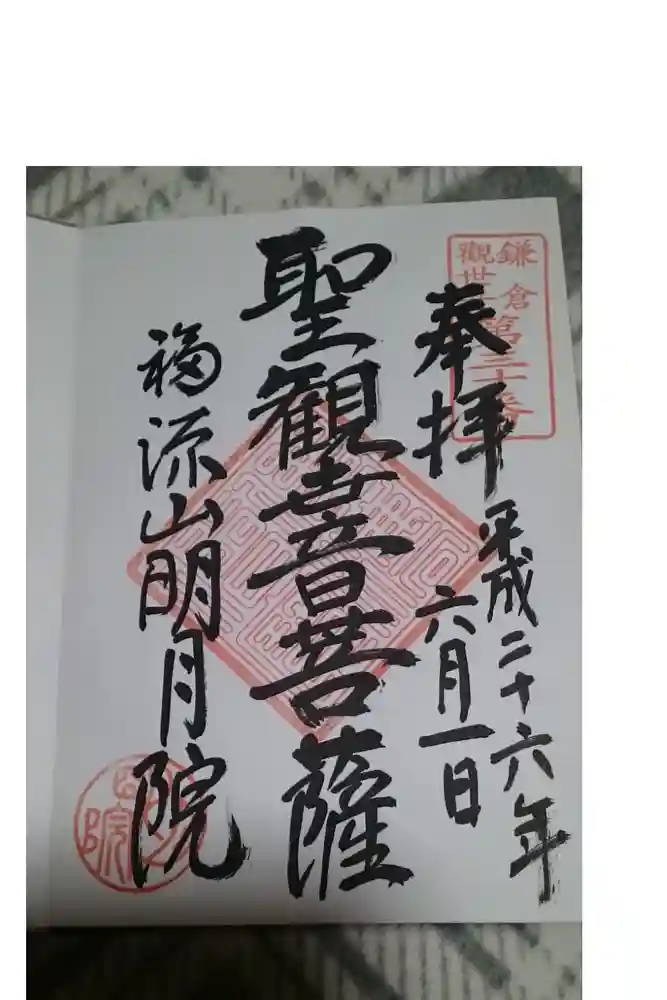 鎌倉
觀世
第三十番
奉拝
平成二十六年
六月一日
聖観世音菩薩
福源山明月院